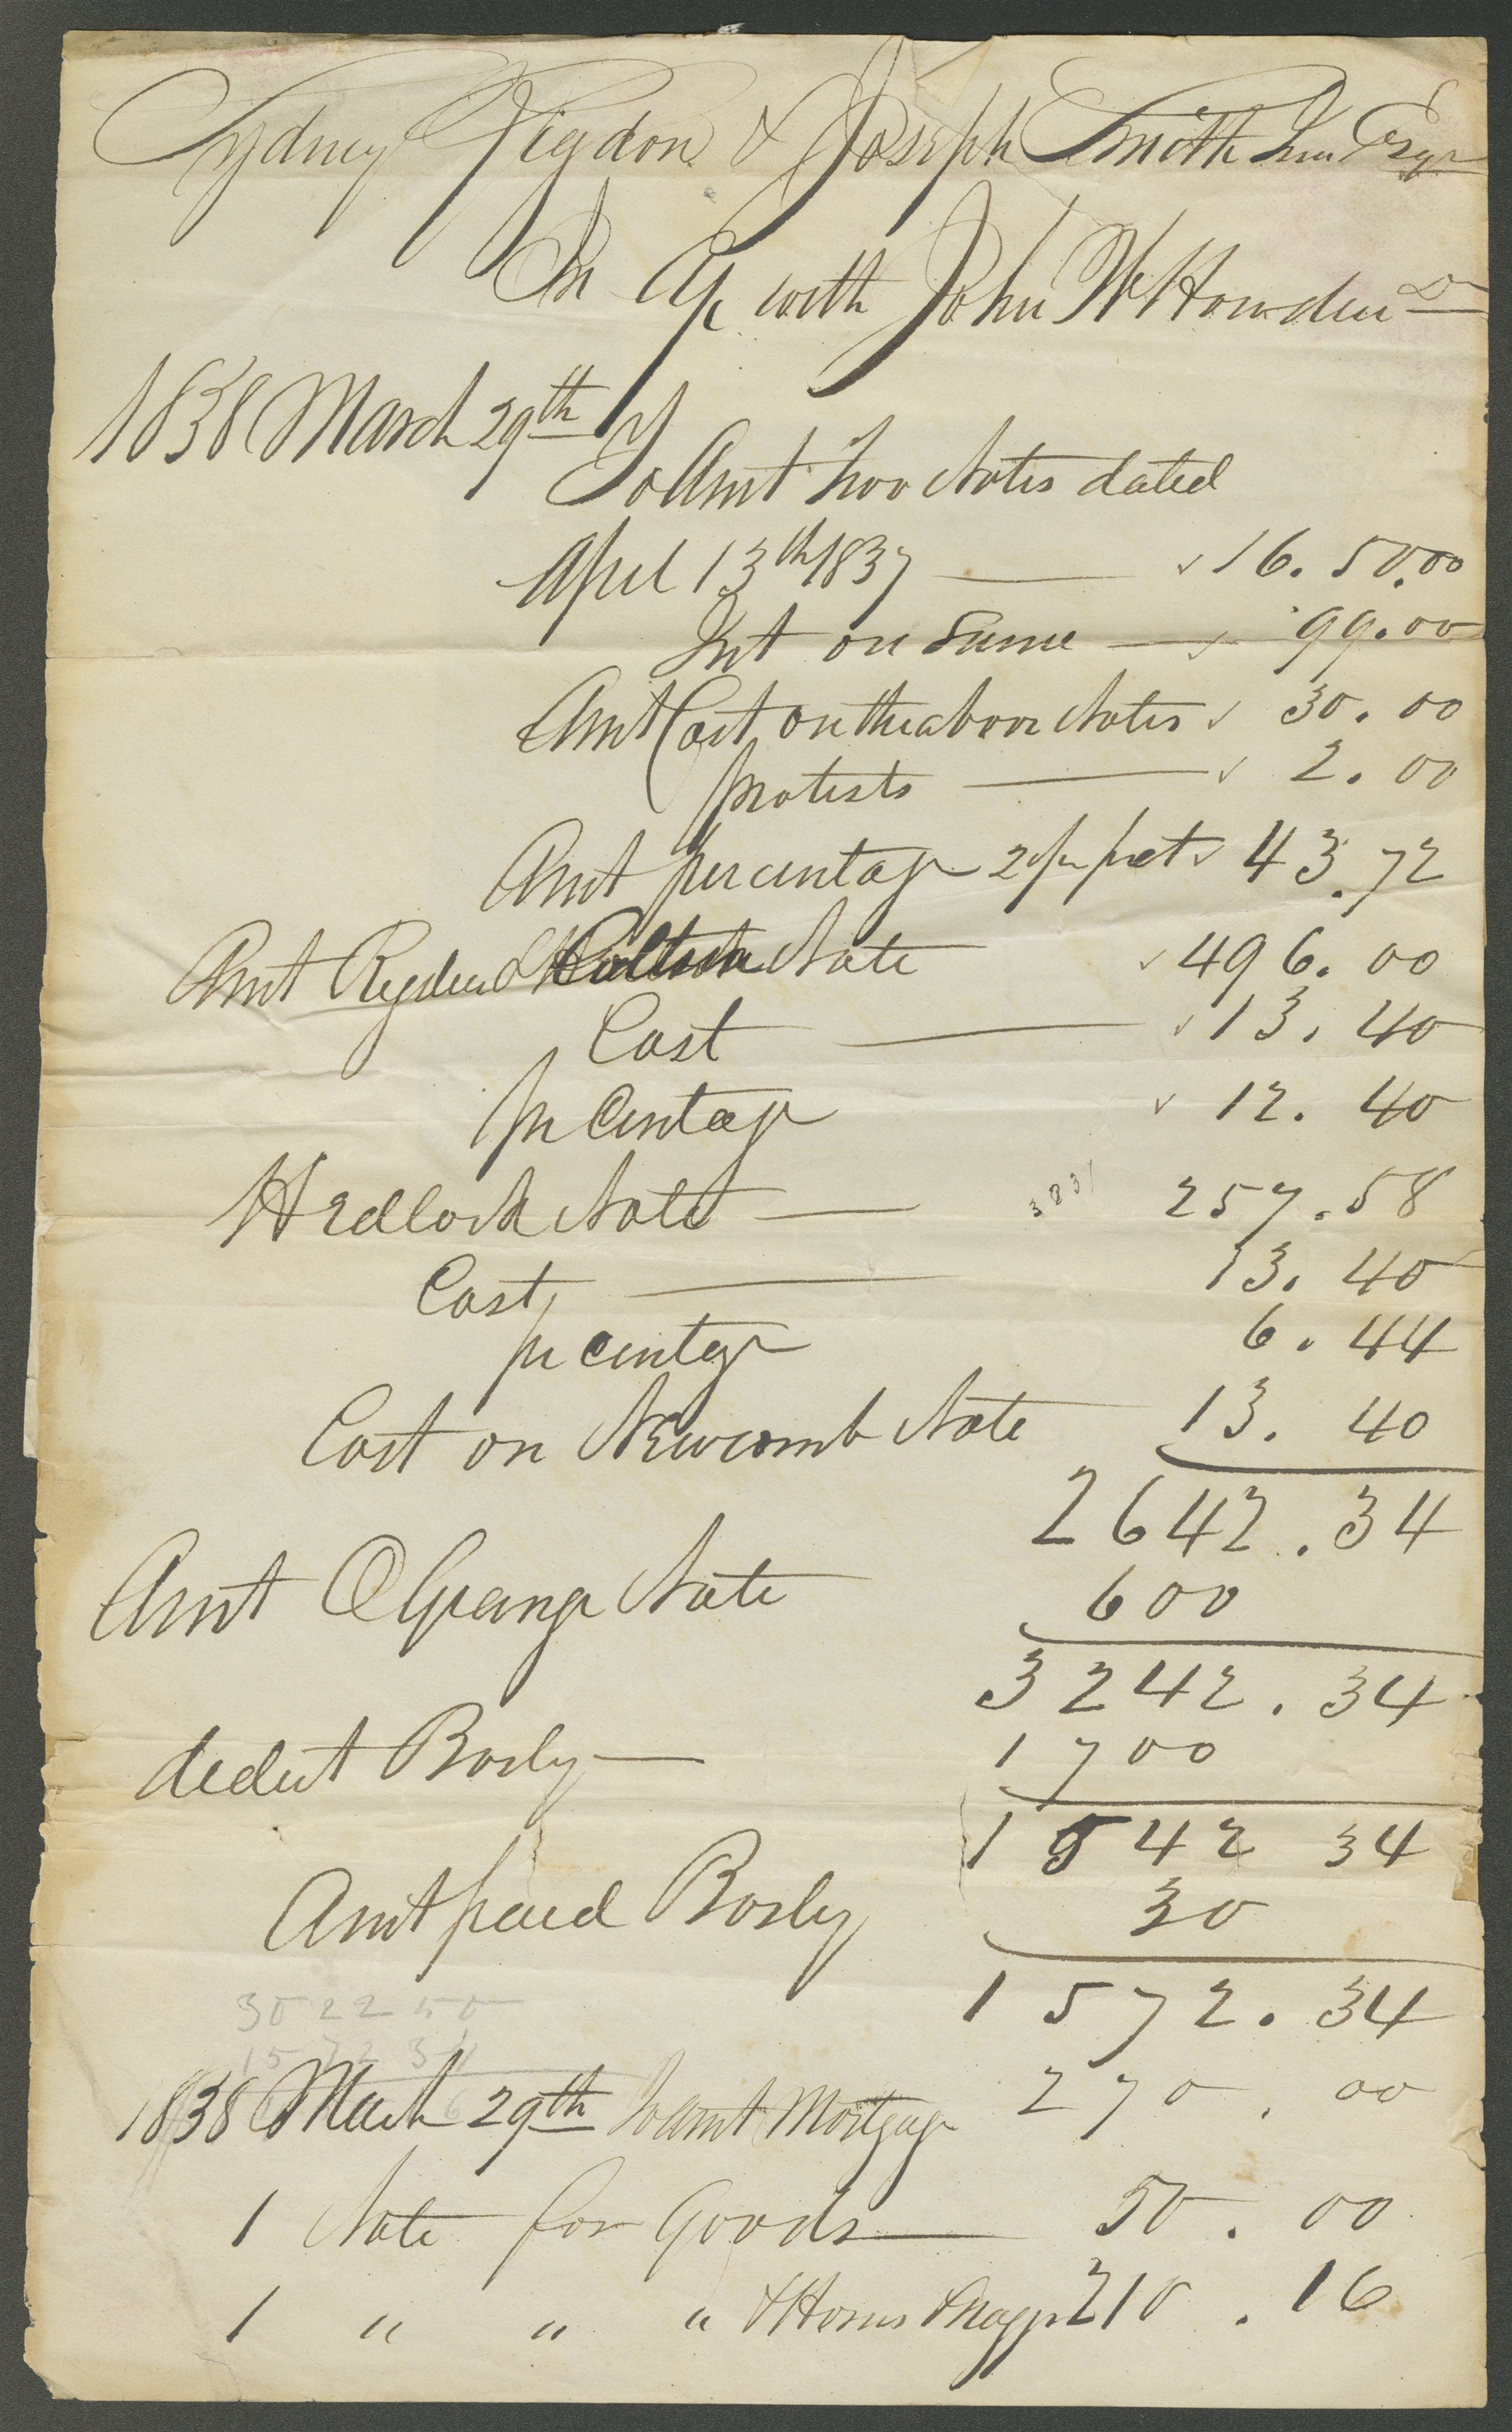 Sydney Rigdon & Joseph Smith Jun Esqr
In a/c with John W Howden Dr
1838 March 29th
To Amt two Notes dated
April 13th 1837 — 16.50.00
Int on Same — 99.00
Amt Cost on the above Notes 30.00
protests — 2.00
Amt percentage 2 pr pct 43.72
Amt Ryder & Note 496.00
Cost — 13.40
pr Centage 12.40
Hedlock Note — 257.58
3831
Cost — 13.40
pr centage 6.44
Cost on Newcomb Note 13.40
2642.34
Amt O Grange Note 600
3242.34
deduct Bosly — 1700
1542 34
Amt paid Bosly 30
1572.34
3022 50
1572 34
1838 March 29th To amt Mortgage 270.00
1 Note for Goods — 50.00
1 " " " & Horses & Waggn 210.16